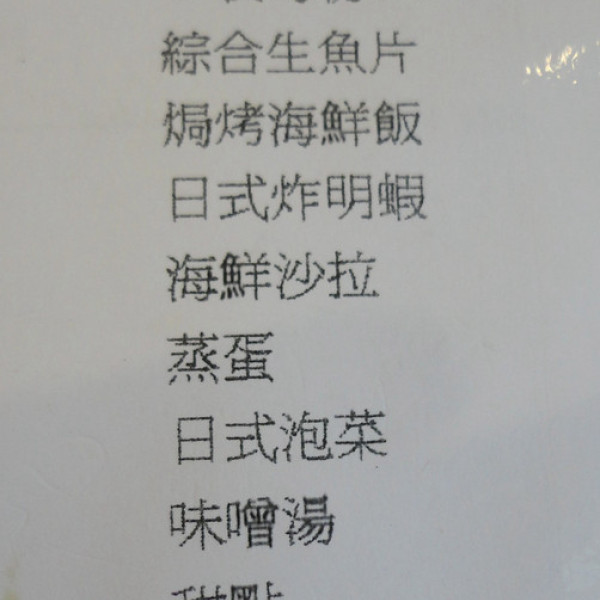 綜合生魚片
焗烤海鮮飯
日式炸明蝦
海鮮沙拉
蒸蛋
日式泡菜
味噌湯
甜點